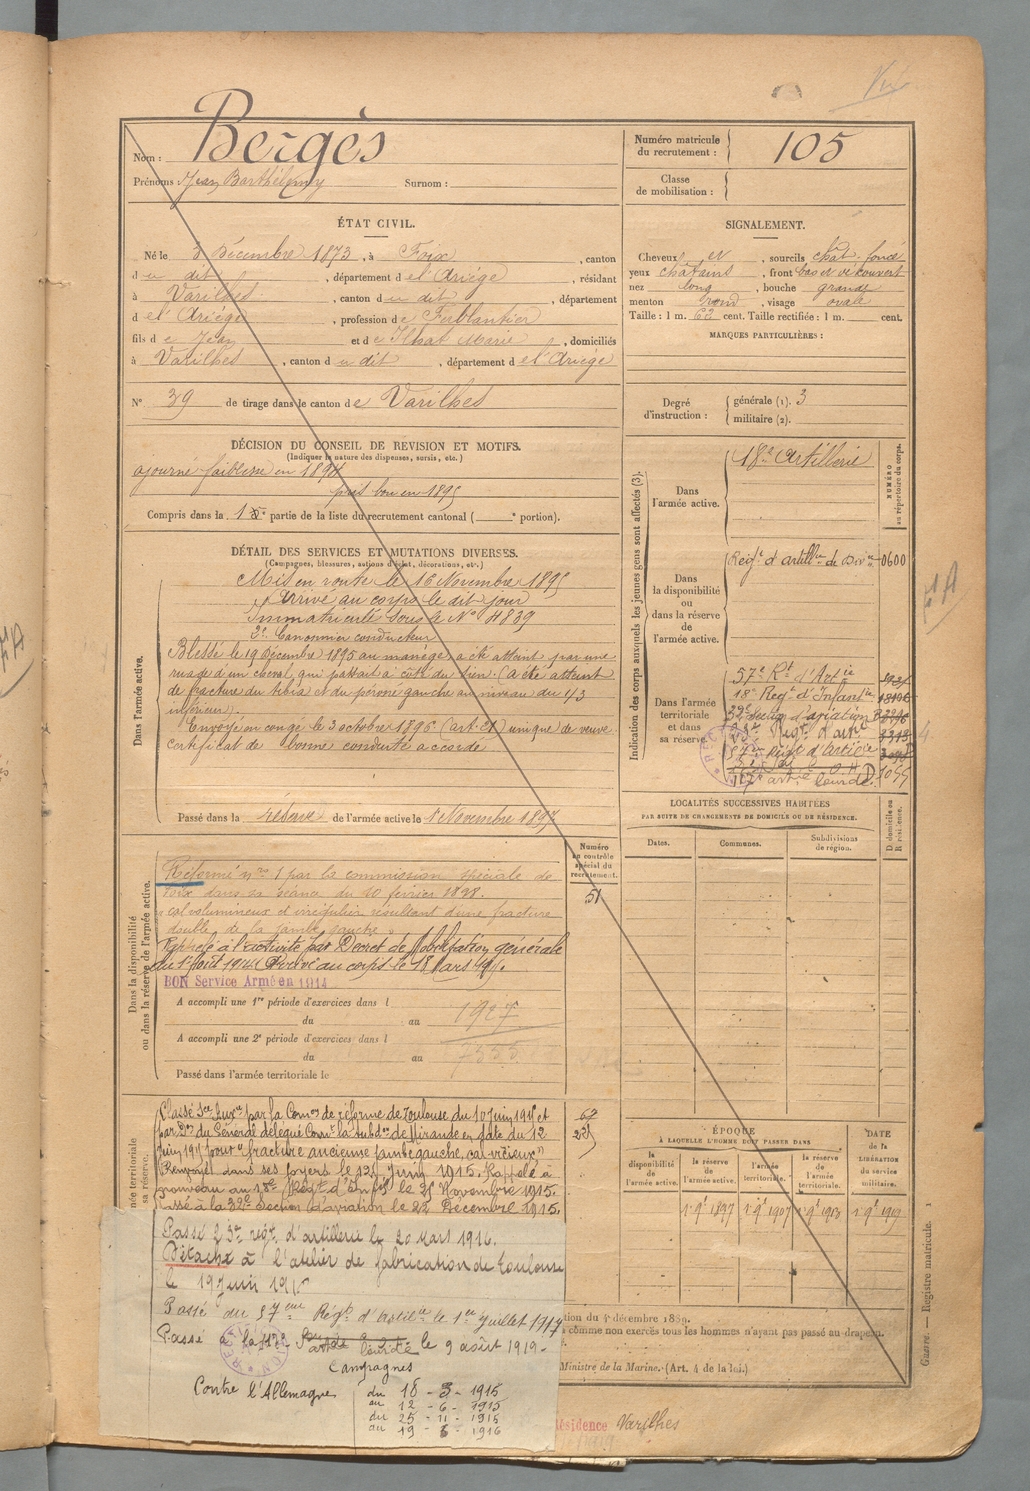 Nom : Bergès
Prénoms : Jean Barthélemy Surnom :
Numéro matricule du recrutement : 105
Classe de mobilisation :
ÉTAT CIVIL.
Né le 3 Décembre 1873, à Foix, canton
du dit, département de l'Ariège, résidant
à Varilhes, canton du dit, département
de l'Ariège, profession de Ferblantier
fils de Jean et de Ilhat Marie, domiciliés
à Varilhes, canton du dit, département de l'Ariège
N° 39 de tirage dans le canton de Varilhes
SIGNALEMENT.
Cheveux et sourcils chât. foncé
yeux châtains, front bas et découvert
nez long, bouche grande
menton rond, visage ovale
Taille : 1 m. 62 cent. Taille rectifiée : 1 m. cent.
MARQUES PARTICULIÈRES :
Degré d'instruction : générale (1). 3
militaire (2).
DÉCISION DU CONSEIL DE REVISION ET MOTIFS.
(Indiquer la nature des dispenses, sursis, etc.)
ajourné faiblesse en 1894
pris bon en 1895
Compris dans la 1e partie de la liste du recrutement cantonal ( e portion).
DÉTAIL DES SERVICES ET MUTATIONS DIVERSES.
(Campagnes, blessures, actions d'éclat, décorations, etc.)
Dans l'armée active.
Mis en route le 16 Novembre 1895
Arrivé au corps le dit jour
Immatriculé sous le N° 4839
2e Canonnier conducteur
Blessé le 19 Décembre 1895 au manège, a été atteint par une
ruade d'un cheval qui passait à côté du sien (a été atteint
de fracture du tibia et du péroné gauche au niveau du 1/3
inférieur).
Envoyé en congé le 3 octobre 1896 (art. 21) unique de veuve
certificat de bonne conduite accordé
Passé dans la réserve de l'armée active le 1 Novembre 1897
Indication des corps auxquels les jeunes gens sont affectés (3).
NUMÉRO au répertoire du corps.
Dans l'armée active. 18e Artillerie
Dans la disponibilité ou dans la réserve de l'armée active.
Régt d'artillie de Don 0600
Dans l'armée territoriale et dans sa réserve.
57e Rt d'Artie
18e Régt d'Infantie
32e Section d'aviation
23e Régt d'artie
57e Régt d'artie
117e artie lourde. 1055
LOCALITÉS SUCCESSIVES HABITÉES
PAR SUITE DE CHANGEMENTS DE DOMICILE OU DE RÉSIDENCE.
Dates. Communes. Subdivisions de région. D domicile ou R résidence.
Numéro au contrôle spécial du recrutement.
51
Dans la disponibilité ou dans la réserve de l'armée active.
Réformé no 1 par la commission spéciale de
Foix dans sa séance du 10 février 1898.
cal volumineux et irrégulier résultant d'une fracture
double de la jambe gauche
Rappelé à l'activité par Décret de Mobilisation générale
du 1er Août 1914. Arrivé au corps le 18 Mars 1915.
BON Service Armé en 1914
A accompli une 1re période d'exercices dans l
du au 1927
A accompli une 2e période d'exercices dans l
du au
Passé dans l'armée territoriale le
Classé Sce Auxre par la Comon de réforme de Toulouse du 10 Juin 1915 et
par Don du Général délégué Comt la subdon de Mirande en date du 12
Juin 1915 pour "fracture ancienne jambe gauche, cal vicieux"
Renvoyé dans ses foyers le 12 Juin 1915. Rappelé à
nouveau au 18e Régt d'Infie le 25 Novembre 1915.
Passé à la 32e Section d'aviation le 22 Décembre 1915.
Passé 23e régt d'artillerie le 20 Mars 1916.
Détaché à l'atelier de fabrication de Toulouse
le 19 Juin 1916
Passé au 57eme Régt d'Artilie le 1er Juillet 1917
Passé à la 117e artie lourde le 9 août 1919-
Campagnes
Contre l'Allemagne
du 18 - 3 - 1915
au 12 - 6 - 1915
du 25 - 11 - 1915
au 19 - 6 - 1916
ÉPOQUE
À LAQUELLE L'HOMME DOIT PASSER DANS
la disponibilité de l'armée active. la réserve de l'armée active. l'armée territoriale. la réserve de l'armée territoriale.
DATE de la LIBÉRATION du service militaire.
1er 9bre 1897 1er 9bre 1907 1er 9bre 1913 1er 9bre 1919
tion du 4 décembre 1889.
comme non exercés tous les hommes n'ayant pas passé au drapeau.
Ministre de la Marine. (Art. 4 de la loi.)
Résidence Varilhes
Guerre. — Registre matricule. 1